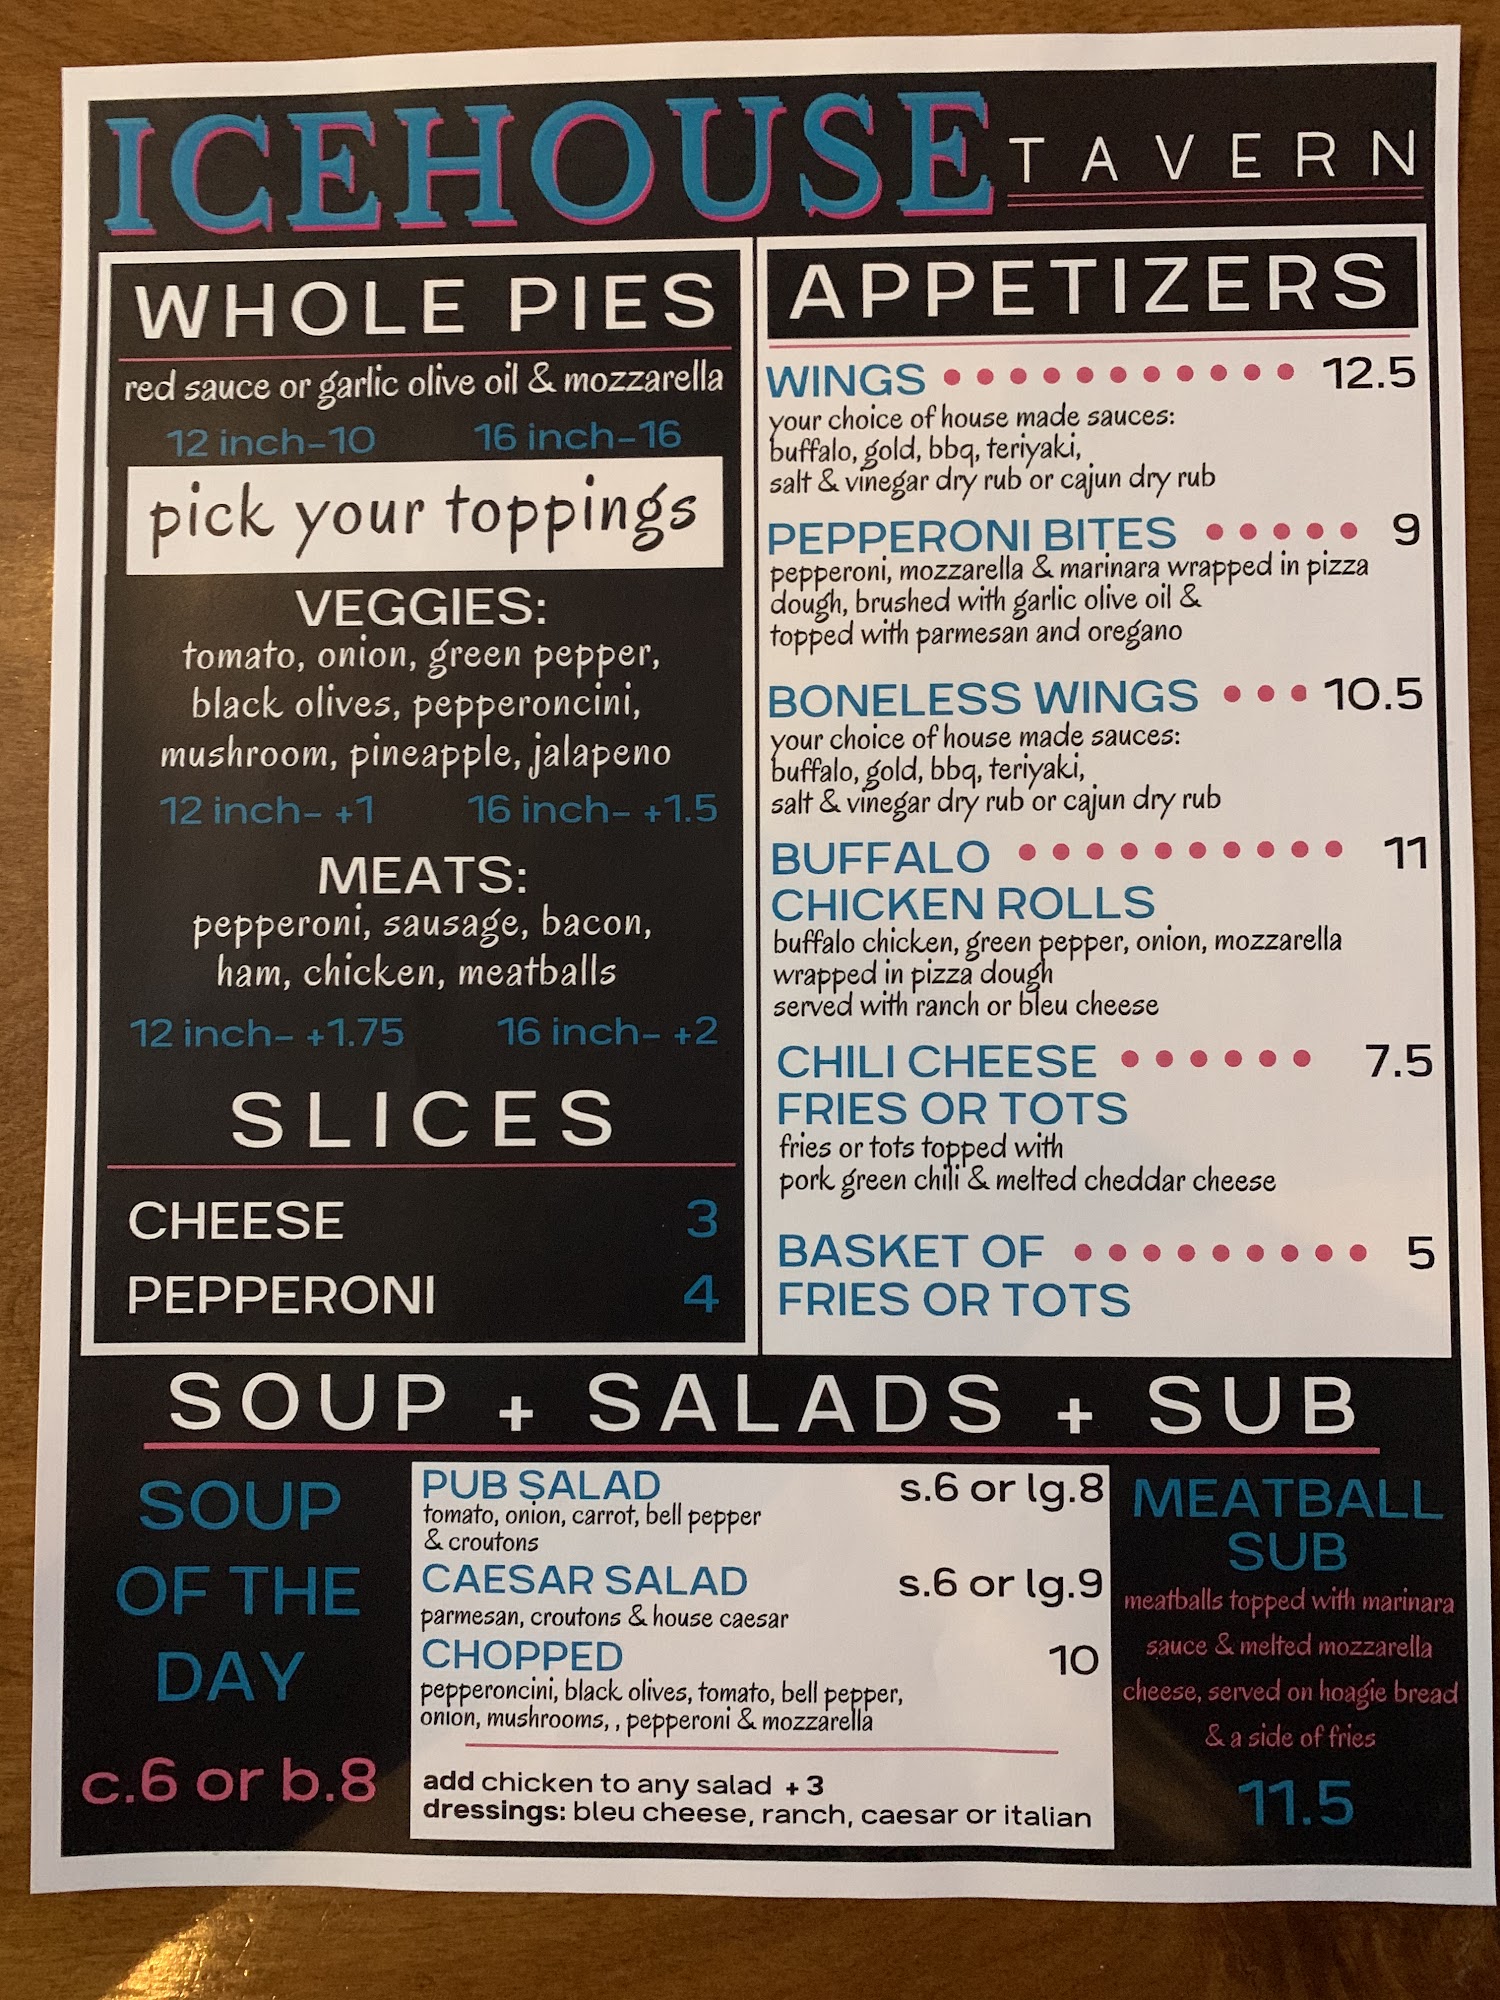 ICEHOUSE TAVERN
WHOLE PIES
red sauce or garlic olive oil & mozzarella
12 inch-10 16 inch-16
pick your toppings
VEGGIES:
tomato, onion, green pepper,
black olives, pepperoncini,
mushroom, pineapple, jalapeno
12 inch- +1 16 inch- +1.5
MEATS:
pepperoni, sausage, bacon,
ham, chicken, meatballs
12 inch- +1.75 16 inch- +2
SLICES
CHEESE 3
PEPPERONI 4
APPETIZERS
WINGS 12.5
your choice of house made sauces:
buffalo, gold, bbq, teriyaki,
salt & vinegar dry rub or cajun dry rub
PEPPERONI BITES 9
pepperoni, mozzarella & marinara wrapped in pizza
dough, brushed with garlic olive oil &
topped with parmesan and oregano
BONELESS WINGS 10.5
your choice of house made sauces:
buffalo, gold, bbq, teriyaki,
salt & vinegar dry rub or cajun dry rub
BUFFALO 11
CHICKEN ROLLS
buffalo chicken, green pepper, onion, mozzarella
wrapped in pizza dough
served with ranch or bleu cheese
CHILI CHEESE 7.5
FRIES OR TOTS
fries or tots topped with
pork green chili & melted cheddar cheese
BASKET OF 5
FRIES OR TOTS
SOUP + SALADS + SUB
SOUP
OF THE
DAY
c.6 or b.8
PUB SALAD s.6 or lg.8
tomato, onion, carrot, bell pepper
& croutons
CAESAR SALAD s.6 or lg.9
parmesan, croutons & house caesar
CHOPPED 10
pepperoncini, black olives, tomato, bell pepper,
onion, mushrooms, , pepperoni & mozzarella
add chicken to any salad + 3
dressings: bleu cheese, ranch, caesar or italian
MEATBALL
SUB
meatballs topped with marinara
sauce & melted mozzarella
cheese, served on hoagie bread
& a side of fries
11.5